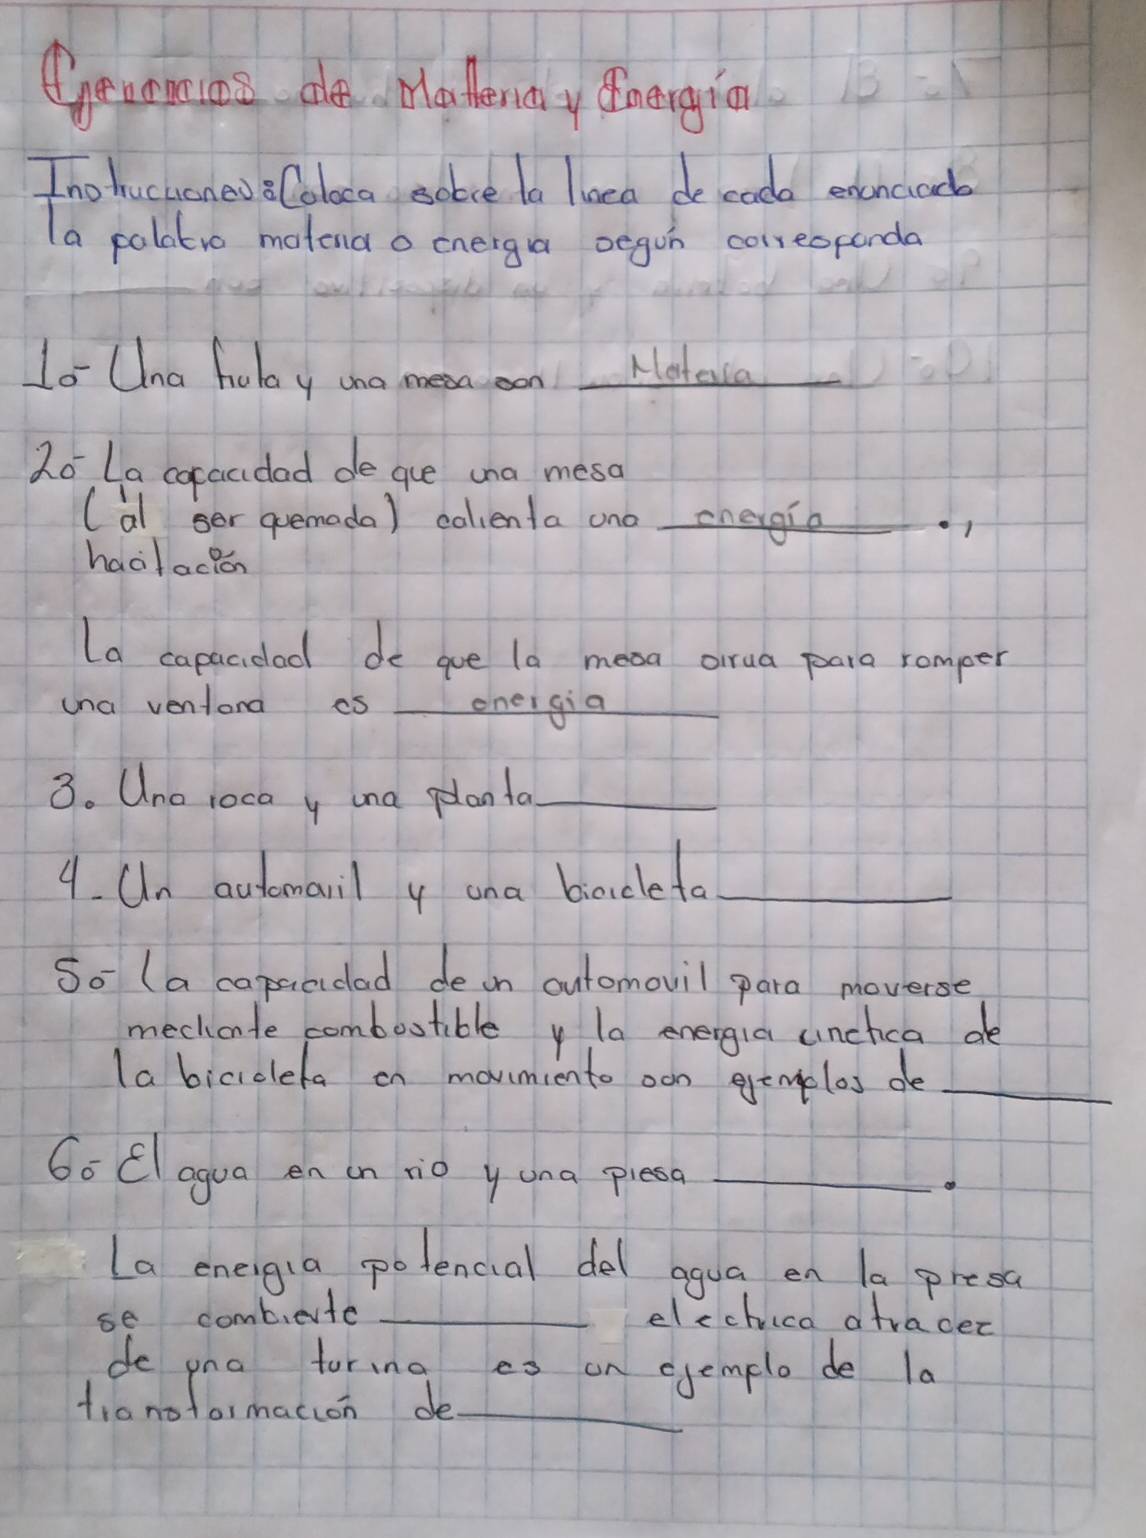 Ejercicios de Materia y Energía
Instrucciones: Coloca sobre la linea de cada enunciado
la palabra materia o energia segun corresponda
1.- Una fruta y una mesa son Materia
2.- La capacidad de que una mesa
(al ser quemada) calienta una energía .,
La capacidad de que la mesa sirva para romper
una ventana es energia
3. Una roca y una planta
4.- Un automavil y una bicicleta
5.- La capacidad de un automovil para moverse
mediante combostible y la energia cinetica de
la bicicleta en movimiento son ejemplos de
6.- El agua en un rio y una presa .
La energia potencial del agua en la presa
se combierte electrica atracez
de una turina es un ejemplo de la
transformación de